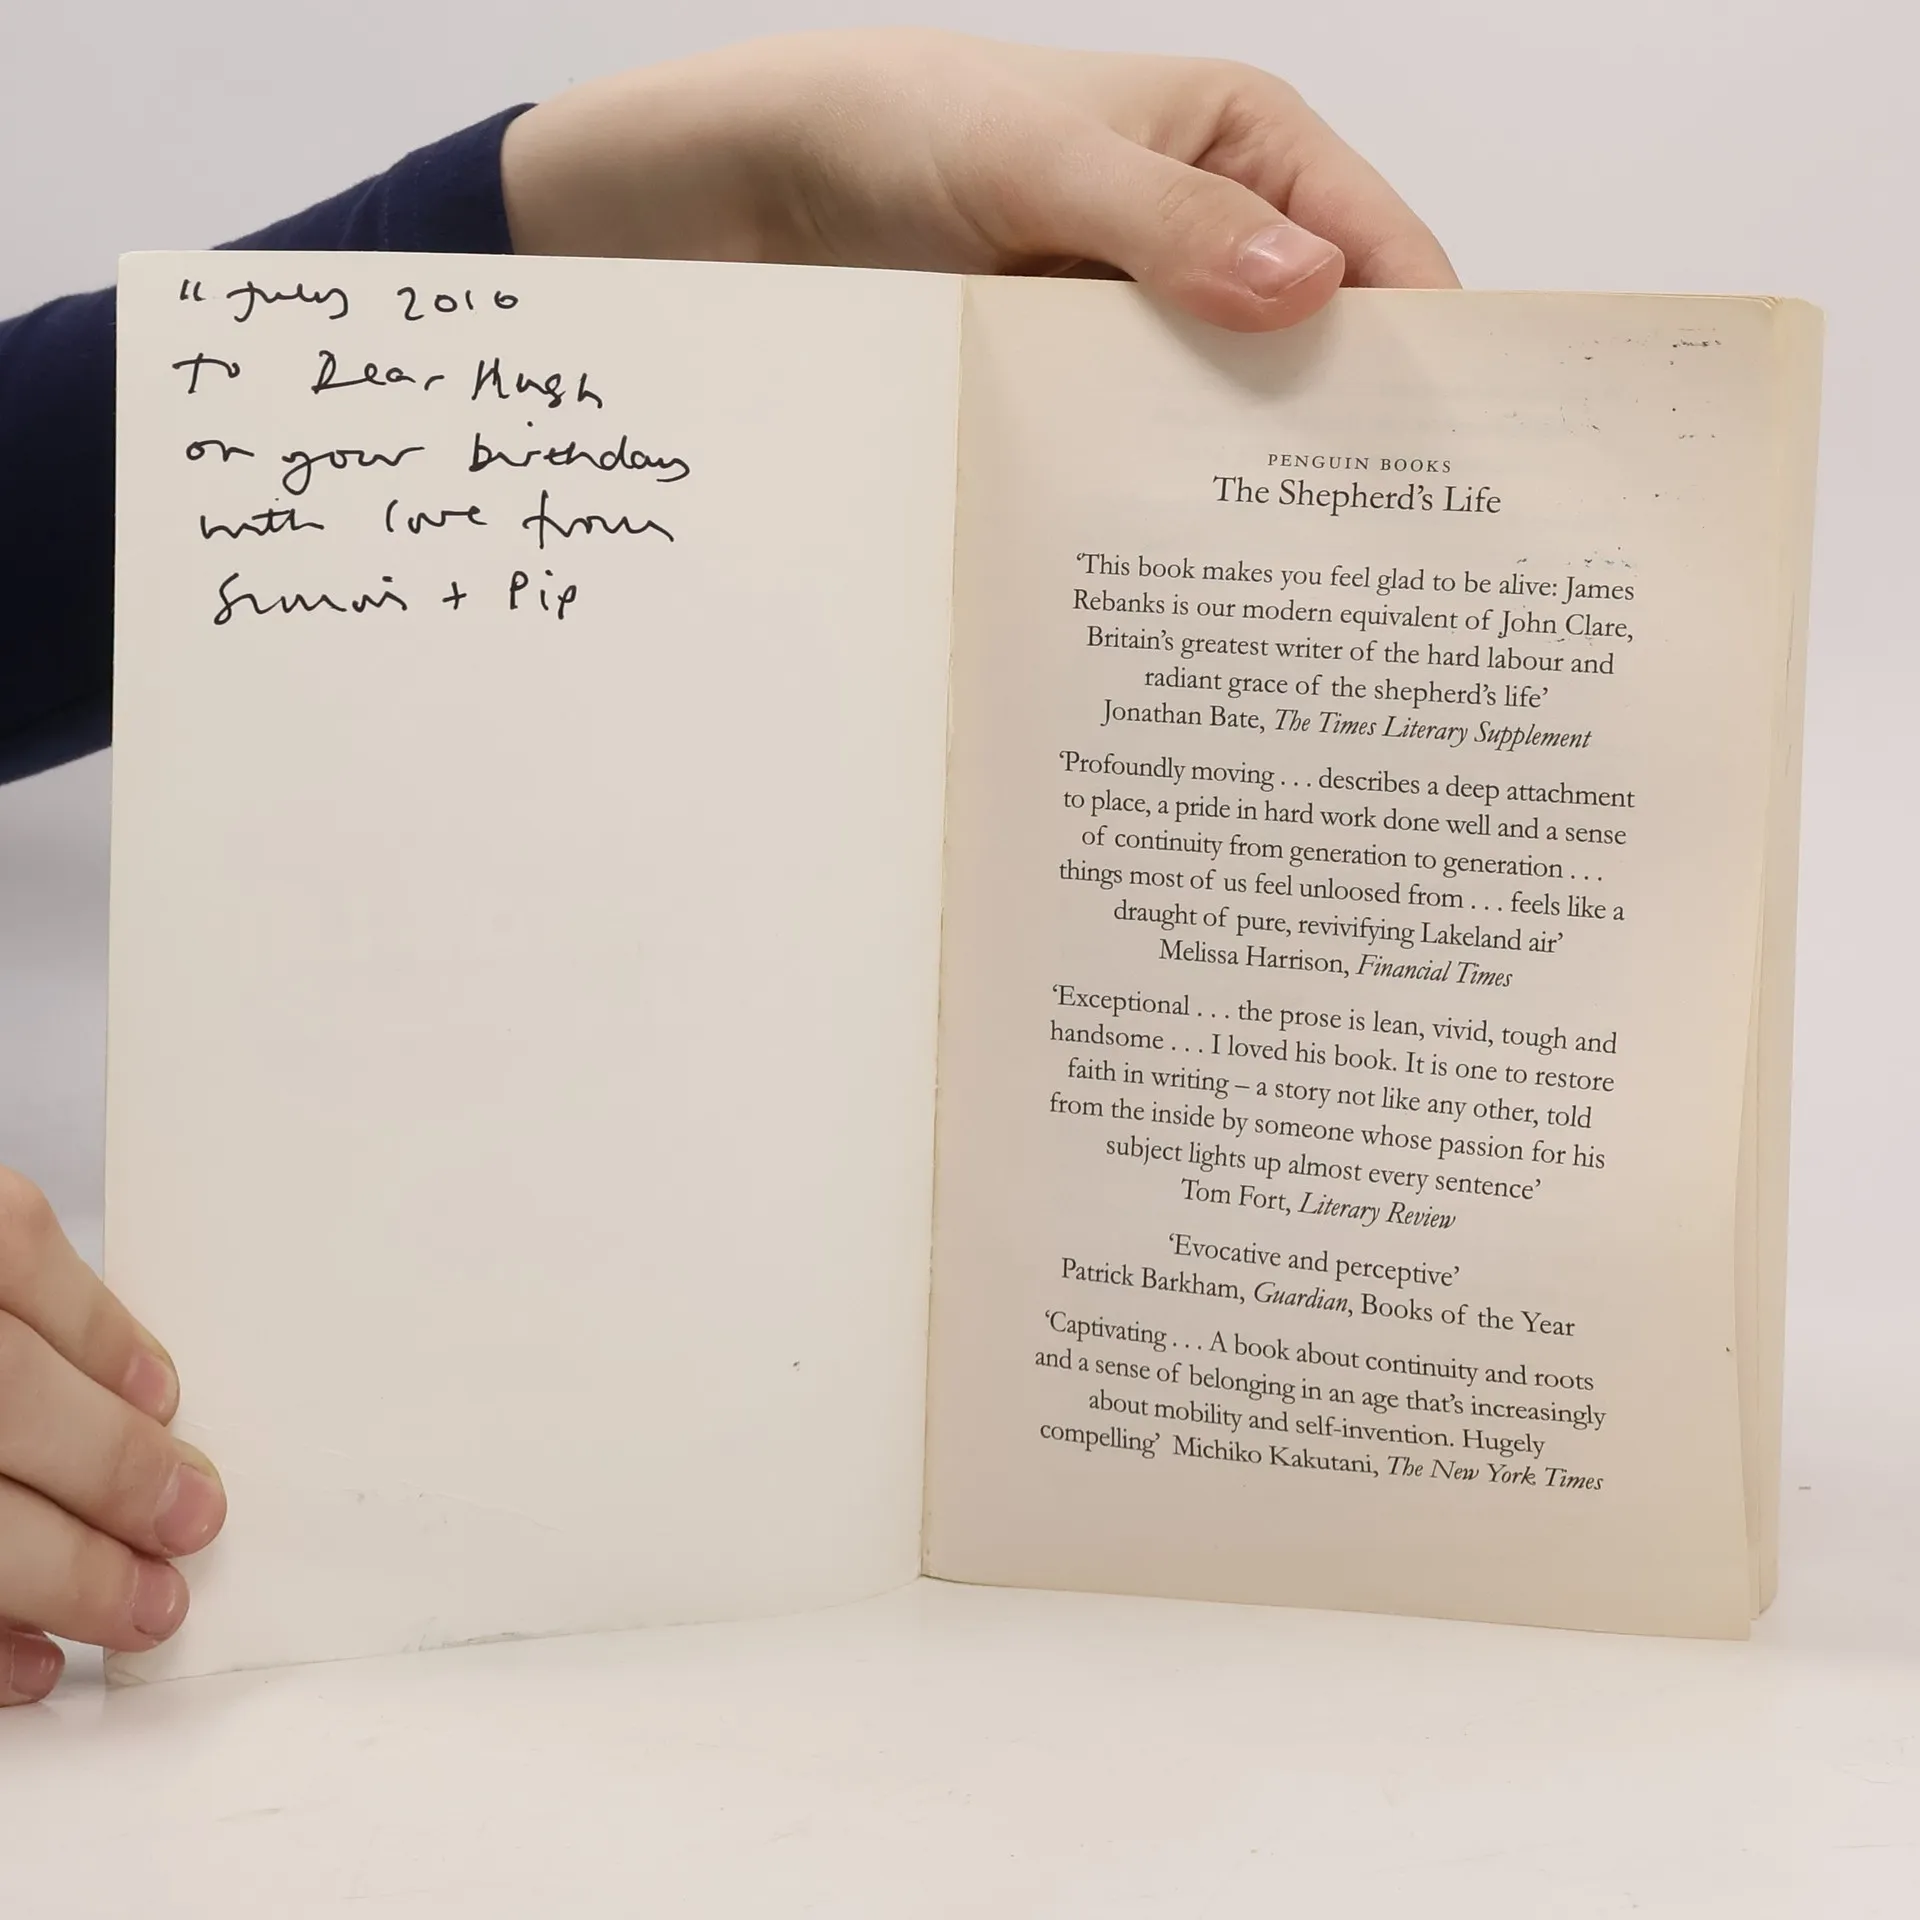 11 July 2016
To Dear Hugh
on your birthday
with love from
+ Pip
PENGUIN BOOKS
The Shepherd’s Life
‘This book makes you feel glad to be alive: James
Rebanks is our modern equivalent of John Clare,
Britain’s greatest writer of the hard labour and
radiant grace of the shepherd’s life’
Jonathan Bate, The Times Literary Supplement
‘Profoundly moving . . . describes a deep attachment
to place, a pride in hard work done well and a sense
of continuity from generation to generation . . .
things most of us feel unloosed from . . . feels like a
draught of pure, revivifying Lakeland air’
Melissa Harrison, Financial Times
‘Exceptional . . . the prose is lean, vivid, tough and
handsome . . . I loved his book. It is one to restore
faith in writing – a story not like any other, told
from the inside by someone whose passion for his
subject lights up almost every sentence’
Tom Fort, Literary Review
‘Evocative and perceptive’
Patrick Barkham, Guardian, Books of the Year
‘Captivating . . . A book about continuity and roots
and a sense of belonging in an age that’s increasingly
about mobility and self-invention. Hugely
compelling’ Michiko Kakutani, The New York Times